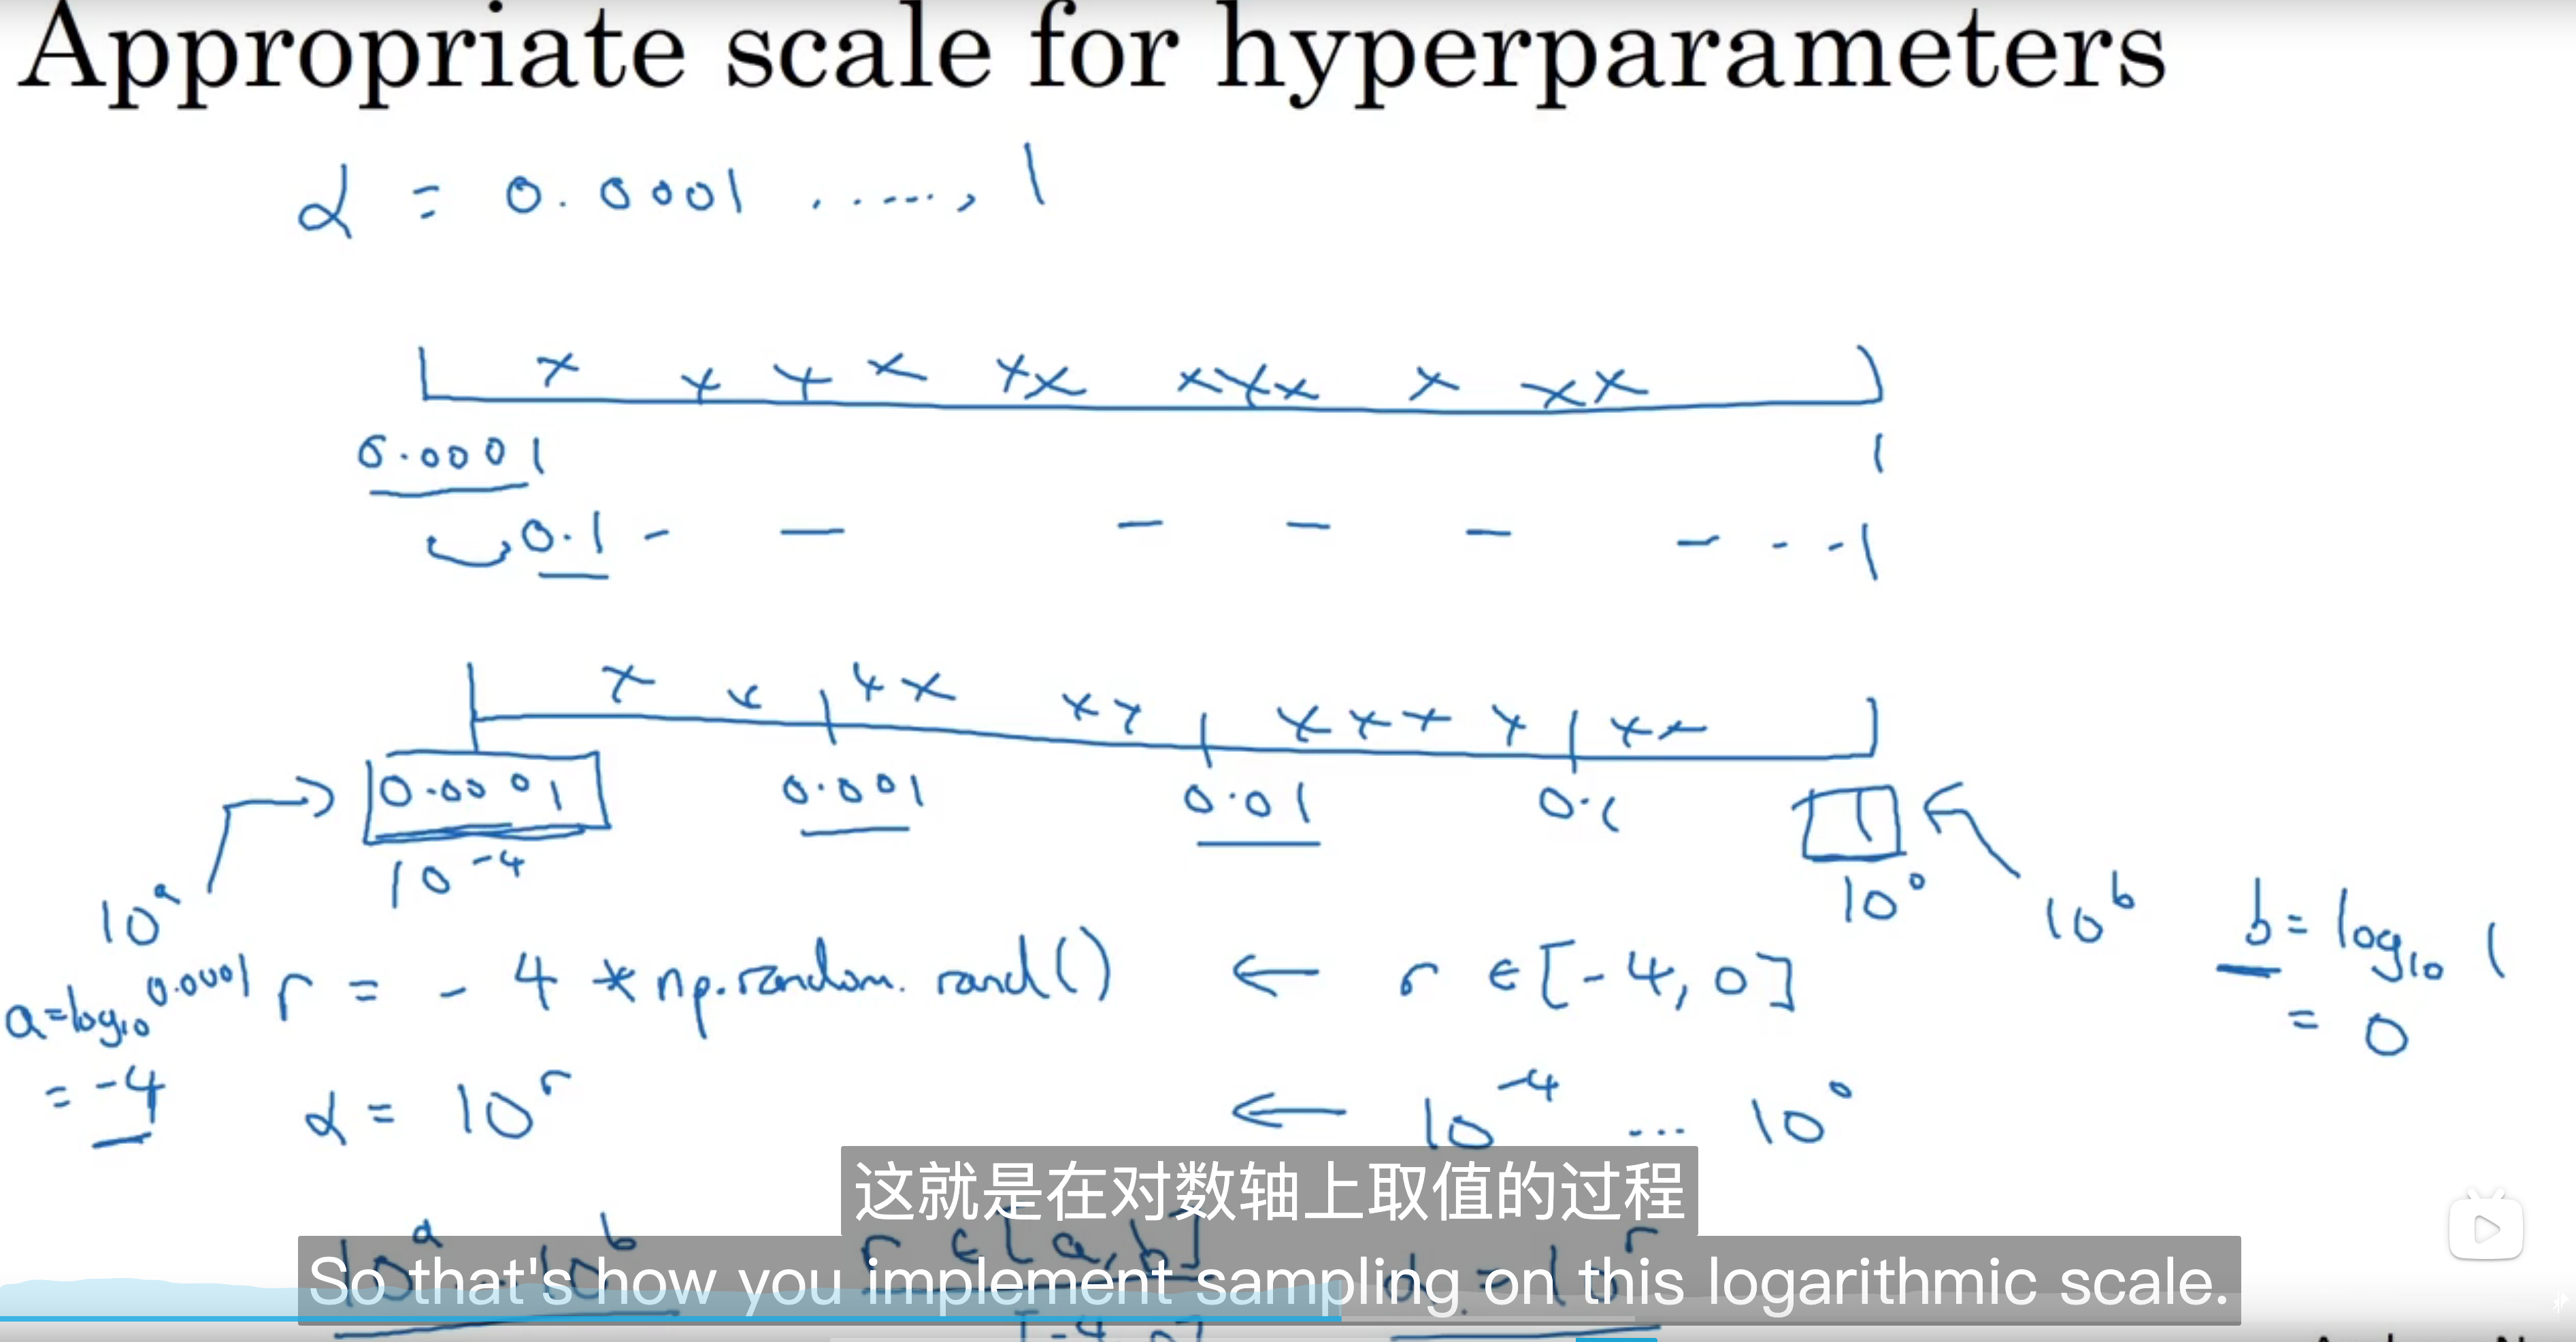 Appropriate scale for hyperparameters
α = 0.0001 ....., 1
0.0001 1
0.1 - - - - - - - - 1
0.0001 0.001 0.01 0.1 1
10^-4 10^0
10^a 10^b b = log10 1
a = log10 0.0001 r = -4 * np.random.rand() ← r ∈ [-4, 0] = 0
= -4 α = 10^r ← 10^-4 ... 10^0
这就是在对数轴上取值的过程
10^a 10^b r ∈ [a, b] α = 10^r
So that's how you implement sampling on this logarithmic scale.